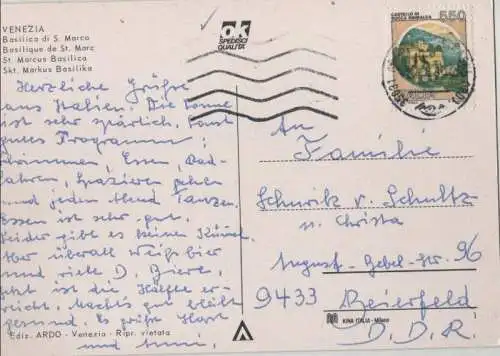 VENEZIA
Basilica di S. Marco
Basilique de St. Marc
St. Marcus Basilica
Skt. Markus Basilika
ok
SPEDISCI
QUALITA'
CASTELLO DI
ROCCA SINIBALDA
550
Herzliche Grüße
aus Italien. Die Sonne
ist sehr spärlich, sonst
gutes Programm:
Schwimmen, Essen, Rad-
fahren, Spazieren gehen
und jeden Abend Tanzen.
Essen ist sehr gut.
Leider gibt es keinen
Aber überall Weißbier
und viele D. Biere.
Jetzt ist die Hälfte er-
reicht. Macht's gut bleibt
gesund. Es grüßt Horst
und
An
Familie
v. Schultz
u. Christa
August-Bebel-Str. 96
9433 Beierfeld
D.D.R.
Ediz. ARDO - Venezia - Ripr. vietata
KINA ITALIA - Milano